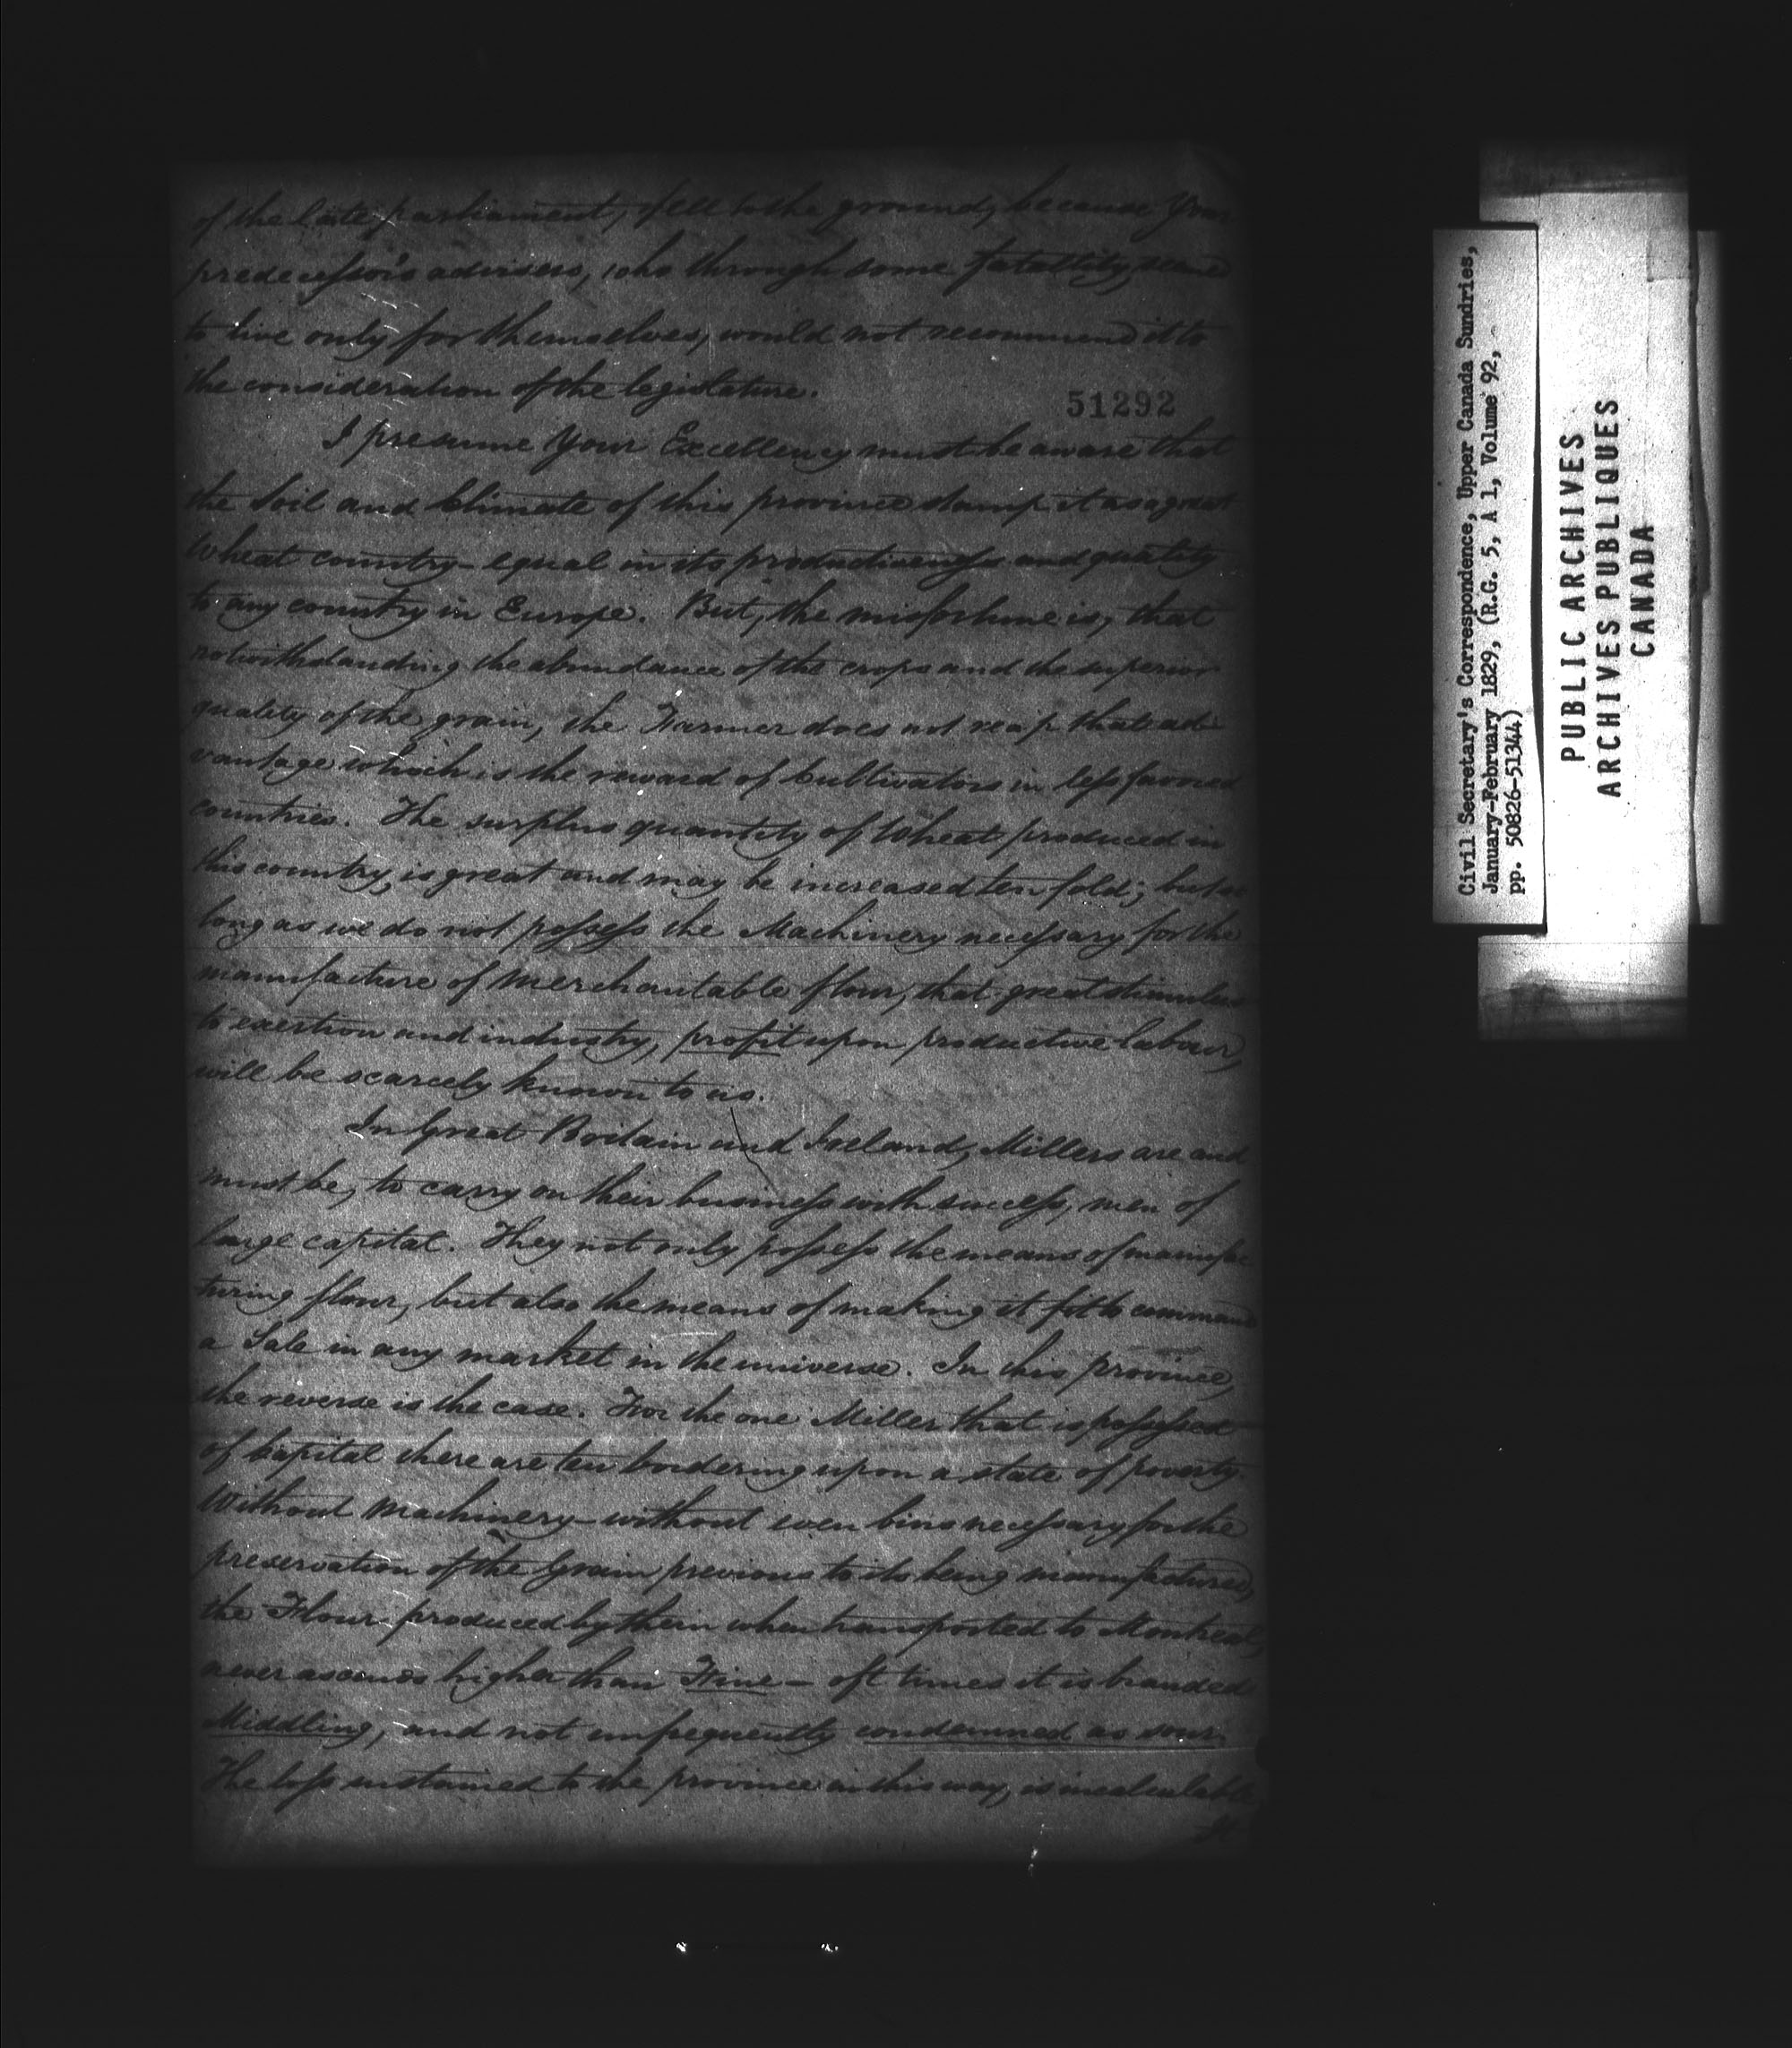 of the late parliament, fell to the ground, because Your
predecessor's advisers, who through some fatallity, seemed
to live only for themselves, would not recommend it to
the consideration of the legislature.
51292
I presume Your Excellency must be aware that
the Soil and Climate of this province stamp it as a great
Wheat country - equal in its productiveness and quality
to any country in Europe. But, the misfortune is, that
notwithstanding the abundance of the crops and the superior
quality of the grain, the Farmer does not reap that ad-
vantage which is the reward of Cultivators in less favored
countries. The surplus quantity of Wheat produced in
this country, is great and may be increased ten fold; but so
long as we do not possess the Machinery necessary for the
manufacture of merchantable flour, that great stimulus
to exertion and industry, profit upon productive labour,
will be scarcely known to us.
In Great Britain and Ireland, Millers are and
must be, to carry on their business with success, men of
large capital. They not only possess the means of manufac-
turing flour, but also the means of making it fit to command
a Sale in any market in the universe. In this province,
the reverse is the case. For the one Miller that is possessed
of Capital there are ten bordering upon a state of poverty.
Without machinery - without even bins necessary for the
preservation of the Grain previous to its being manufactured,
the Flour produced by them when transported to Montreal,
never ascends higher than Fine - oft times it is branded
Middling, and not unfrequently condemned as sour.
The loss sustained to the province in this way, is incalculable
Civil Secretary's Correspondence, Upper Canada Sundries,
January-February 1829, (R.G. 5, A 1, Volume 92,
pp. 50826-51344)
PUBLIC ARCHIVES
ARCHIVES PUBLIQUES
CANADA